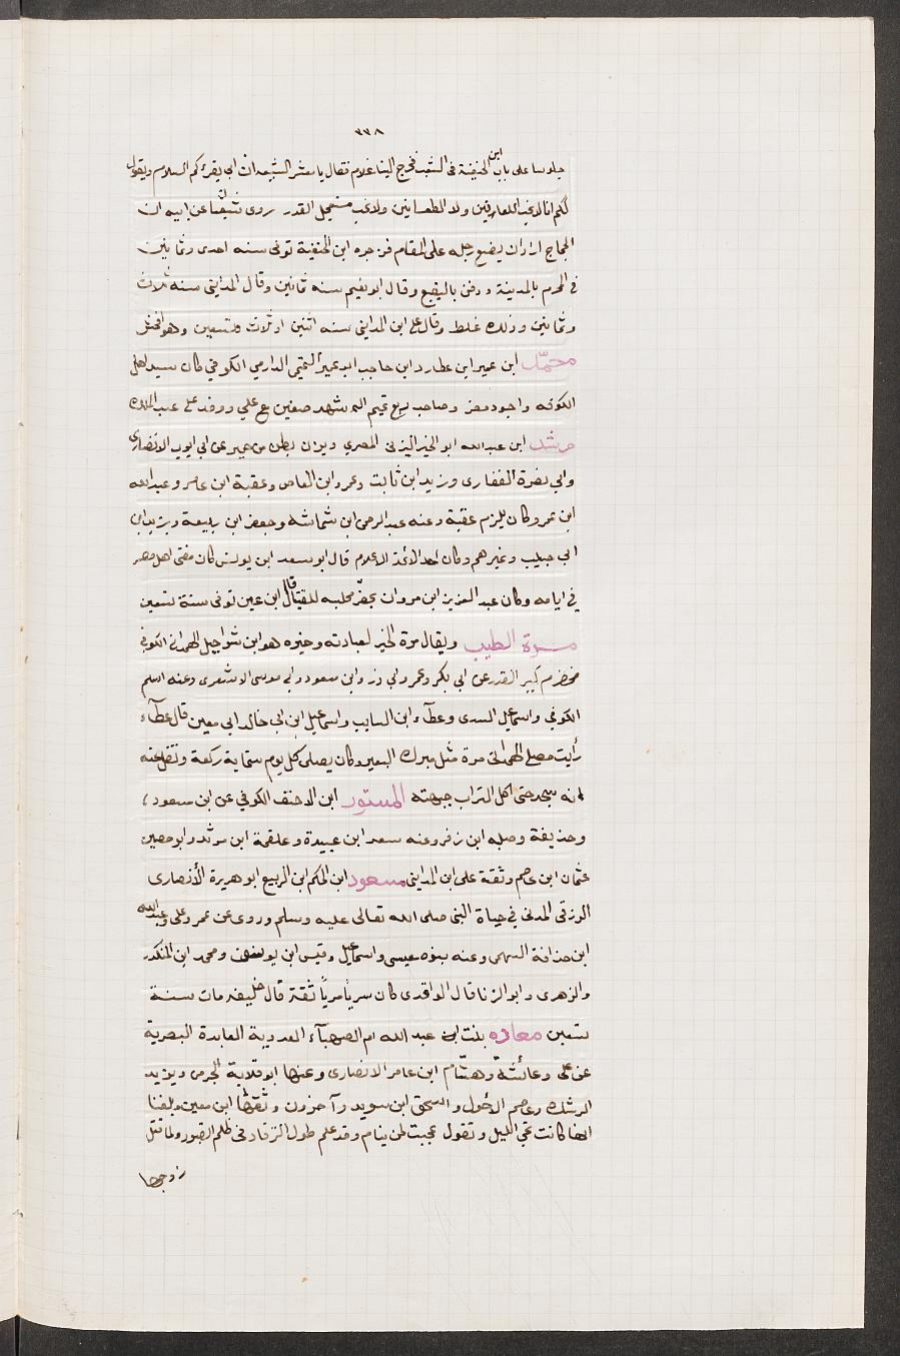 ٢٢٨
جلوسا على باب ابن الحنفية في الشعب فخرج الينا غلام فقال يا معشر الشيعة ان ابي يقرءكم السلام ويقول
لكم انا لا نحب اللعانين ولا الطعانين ولا نحب مستعجل القدر روى عن ابيه ان
الحجاج اراد ان يضع رجله على المقام فزجره ابن الحنفية توفى سنه احدى وثمانين
في المحرم بالمدينة ودفن بالبقيع وقال ابو نعيم سنه ثمانين وقال المدايني سنه ثلاث
وثمانين وذلك غلط وقال على ابن المدايني سنه اثنين او ثلاث وتسعين وهو افحش
محمد ابن عمير ابن عطارد ابن حاجب ابو عمير التميمي الدارمي الكوفي كان سيد اهل
الكوفه واجود مضر وصاحب ربع تميم شهد صفين مع علي ووفد على عبد الملك
مرثد ابن عبدالله ابو الخير اليزنى المصري ويزن بطن من حمير عن ابي ايوب الانصارى
وابي بضرة الغفارى وزيد ابن ثابت وعمرو ابن العاص وعقبة ابن عامر وعبدالله
ابن عمرو وكان يلزم عقبة وعنه عبد الرحمن ابن شماشه وجعفر ابن ربيعة ويزيد ابن
ابي حبيب وغيرهم وكان احد الائمة الاعلام قال ابو سعد ابن يونس كان مفتى اهل مصر
في ايامه وكان عبد العزيز ابن مروان يحضر مجلسه للفتيا قال ابن معين توفى سنة تسعين
مرة الطيب ويقال مرة الخير لعبادته وخيره هو ابن شراحيل الهمدانى الكوفي
مخضرم كبير القدر عن ابي بكر وعمر وابي ذر وابن مسعود وابي موسى الاشعرى وعنه اسلم
الكوفي واسماعيل السدى وعطآء ابن السايب واسماعيل ابن ابي خالد ابن معين قال عطآء
رأيت مصلى الهمدانى مرة مثل مبرك البعير وكان يصلى كل يوم ستماية ركعة ونقل عنه
انه سجد حتى اكل التراب جبهته المستور ابن الاحنف الكوفي عن ابن مسعود
وحذيفة وصله ابن زفر وعنه سعد ابن عبيدة وعلقمة ابن مرثد وابو حصين
عثمان ابن عاصم وثقة على ابن المدايني مسعود ابن الحكم ابن الربيع ابو هريرة الأنصارى
الزرقى المدنى في حياة النبى صلى الله تعالى عليه وسلم وروى عن عمر وعلى وعبدالله
ابن حذافة السهمى وعنه بنوه عيسى واسماعيل وقيس ابن يوسف ومحمد ابن المنكدر
والزهرى وابو الزنا قال الواقدى كان سريا مريا ثقة قال خليفه مات سنة
تسعين معاذه بنت عبد الله ام الصهبآء العدوية العابدة البصرية
عن على وعائشة وهشام ابن عامر الانصارى وعنها ابو قلابة الجرمى ويزيد
الرشك وعاصم الاحول واسحق ابن سويد وآخرون وثقها ابن معين وبلغنا
انها كانت تحى الليل وتقول عجبت لمن ينام وقد علم طول الرقاد في ظلم القبور ولما قتل
زوجها